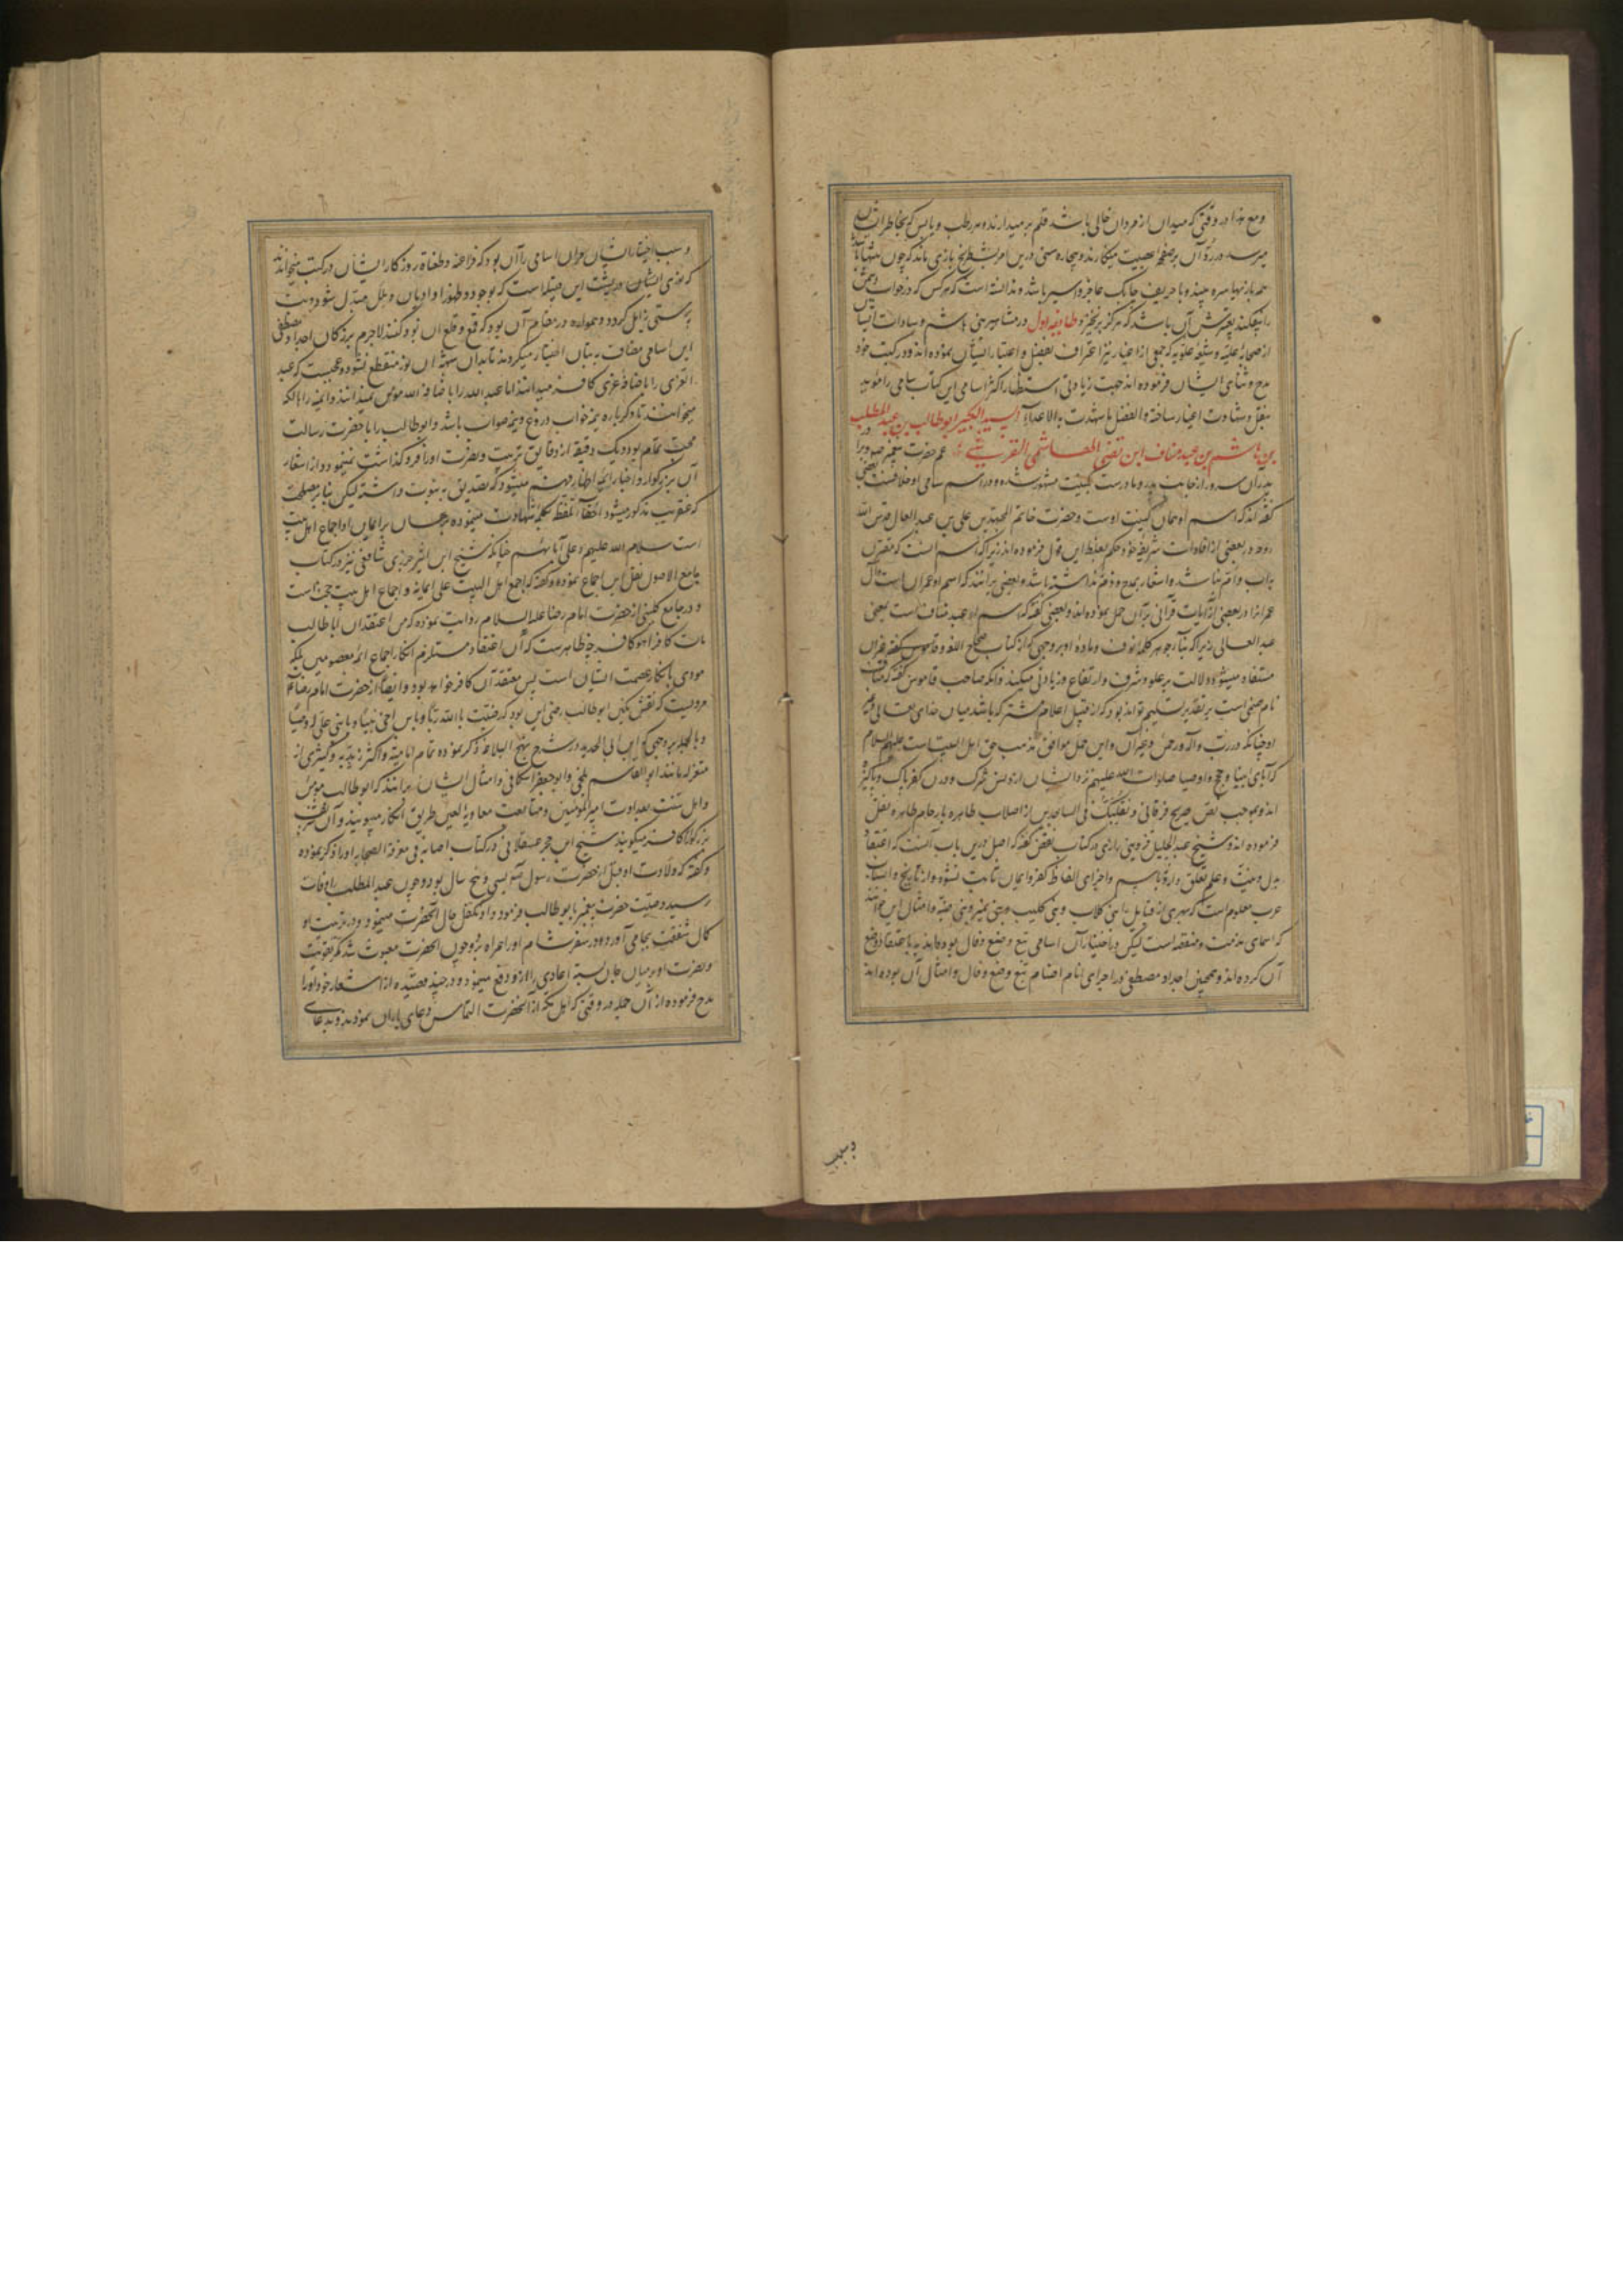 ومع هذا در وقتی که میدان از مردان خالی باشد قلم بر میدارند و هر رطب و یابس که بخاطر ایشان
میرسد در رد آن بر صفحه عصبیت مینگارند و بیچاره سنی درین امر بشطرنج بازی ماند که چون تنها باشد
همه بازیها سره چیند و با حریف چابک عاجز و اسیر باشد و ندانسته است که هر کس که در خواب دشمن
را بیفکند تعبیرش آن باشد که هرگز برنخیزد طایفه اول در مشاهیر بنی هاشم و سادات ایشان
از صحابه علیه و شیعه علویه که جمعی از اغیار نیز اعتراف بفضل و اعتبار ایشان نموده‌اند و در کتب خود
مدح و ثنای ایشان فرموده‌اند جهت زیادتی استظهار اکثر اسامی این کتاب سامی را مؤید
بنقل و شهادت اغیار ساخته والفضل ما شهدت به الاعداء السید الکبیر ابو طالب بن عبد المطلب
بن هاشم بن عبد مناف ابن قصی الهاشمی القرشی عم حضرت پیغمبر و
پدران سرور از جانب پدر و مادرست بکنیت مشهور شده و در اسم سامی او خلافست بعضی
گفته‌اند که اسم او همان کنیت اوست و حضرت خاتم المجتهدین علی بن عبد العال قدس الله
روحه در بعضی از افادات شریفه خود حکم بغلط این قول فرموده‌اند زیرا که اسم آنست که مصدر
به اب و ام نباشد و اشعار بمدح و ذم نداشته باشد و بعضی برانند که اسم او عمران است و آل
عمرانرا در بعضی از آیات قرآنی بر آن حمل نموده‌اند و بعضی گفته که اسم او عبد مناف است یعنی
عبد العالی زیرا که بنا بر جوهر کلمه نوف و ماده او بر وجهی که از کتاب صحاح اللغه و قاموس
مستفاد میشود دلالت بر علو و شرف و ارتفاع و زیادتی میکند و آنکه صاحب قاموس گفته که مناف
نام صنمی است بر تقدیر تسلیم تواند بود که از قبیل اعلام مشترکه باشد میان خدای تعالی و غیر
او چنانکه در رب و اله و رحمن و غیر آن و این حمل موافق مذهب حق اهل البیت است علیهم السلام
که آبای انبیا و حجج و اوصیا صلوات الله علیهم نزد ایشان از دنس شرک و درن کفر پاک و پاکیزه
اند و بموجب نص صریح فرقانی و تقلبک فی الساجدین از اصلاب طاهره بارحام طاهره نقل
فرموده‌اند و شیخ عبد الجلیل قزوینی رازی در کتاب نقض گفته که اصل درین باب آنست که اعتقاد
بدل و نیت و علم تعلق دارد و باسم و اجرای الفاظ کفر و ایمان ثابت نشود و از تاریخ و انساب
عرب معلوم است که بسیری از قبایل را بنی کلاب و بنی کلیب و بنی نمیر و بنی ضبه و امثال این خوانند
که اسمای مذمت و منقصه است لیکن در اختیار آن اسامی تبع وضع و فال بوده‌اند نه باعتقاد وضع
آن کرده‌اند و همچنین اجداد مصطفی در اجرای نام اصنام تبع وضع و فال و امثال آن بوده‌اند
وسبب
وسبب اختیار ایشان مران اسامی را آن بود که فراعنه و طغاة روزگار ایشان در کتب میخواندند
که نوری ایشان در پشت این قبیله است که بوجود و ظهور او ادیان و ملل مبدل شود و بت
پرستی زایل گردد و همواره در مقام آن بود که قمع و قلع آن نور کنند لاجرم بزرگان اجداد مصطفی
این اسامی مضاف به بتان اختیار میکردند تا بدان شبهه آن نور منقطع نشود و عجبست که عبد
العزی را باضافه عزی کافر میدانند اما عبد الله را باضافه الله مؤمن نمیدانند و آمنه را بآنکه
میخوانند تا دگرباره نیمه خواب دروغ و نیمه صواب باشد و ابو طالب را با حضرت رسالت
محبت تمام بود و یک دقیقه از دقایق تربیت و نصرت او را فرو گذاشت نمینمود و از اشعار
آن بزرگوار و اخبار ائمه اطهار فهم میشود که تصدیق به نبوت داشته لیکن بنا بر مصلحت
که عنقریب مذکور میشود اخفاء تلفظ بکلمه شهادت مینموده و برهان بر ایمان او اجماع اهل بیت
است سلام الله علیهم و علی آبائهم چنانکه شیخ ابن اثیر جزری شافعی نیز در کتاب
جامع الاصول نقل این اجماع نموده و گفته که اجمع اهل البیت علی ایمانه و اجماع اهل بیت حجة است
و در جامع کلینی از حضرت امام رضا علیه السلام روایت نموده که من اعتقد ان ابا طالب
مات کافرا فهو کافر چه ظاهرست که آن اعتقاد مستلزم انکار اجماع ائمه معصومین بلکه
مودی بانکار عصمت ایشان است پس معتقد آن کافر خواهد بود و ایضا از حضرت امام رضا
مرویست که نقش نگین ابو طالب رضی این بود که رضیت بالله ربا و بابن اخی نبیا و بابنی علی له وصیا
و بالجمله بر وجهی که ابن ابی الحدید در شرح نهج البلاغه ذکر نموده تمام امامیه و اکثر زیدیه و کثیری از
معتزله مانند ابو القاسم بلخی و ابو جعفر اسکافی و امثال ایشان برانند که ابو طالب مؤمن
و اهل سنت بعداوت امیر المؤمنین و متابعت معاویه لعین طریق انکار میپویند و آن
بزرگوار را کافر میگویند شیخ ابن حجر عسقلانی در کتاب اصابه فی معرفة الصحابه او را ذکر نموده
و گفته که ولادت او قبل از حضرت رسول به سی و پنج سال بود و چون عبد المطلب را وفات
رسید وصیت حضرت پیغمبر بابو طالب فرمود و او تکفل حال آنحضرت مینمود و در تربیت او
کمال شفقت بجای آورد و در سفر شام او را همراه برد و چون آنحضرت مبعوث شد کمر بتقویت
و نصرت او بر میان جان بسته اعادی را از او دفع مینمود و در چند قصیده از اشعار خود او را
مدح فرموده از آن جمله در وقتی که اهل مکه از آنحضرت التماس دعای باران نمودند و بدعای